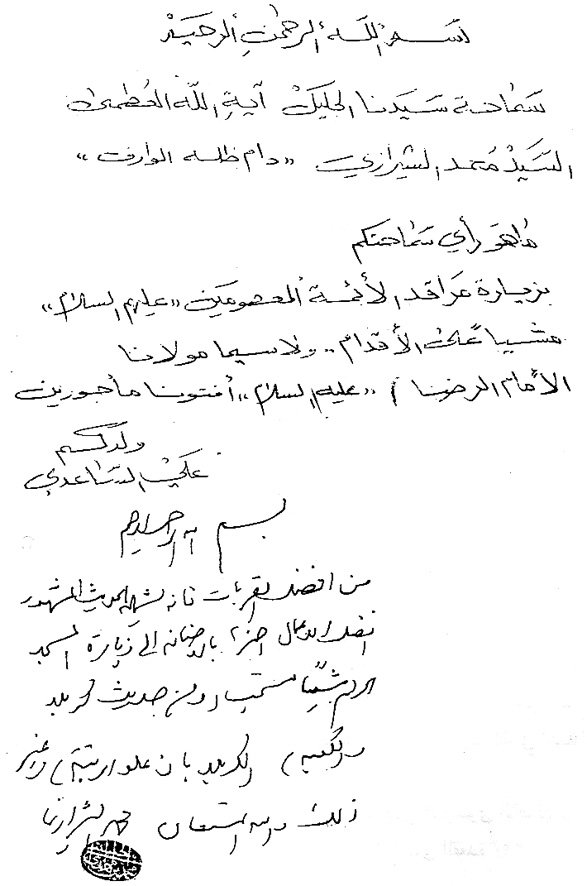 بسم الله الرحمن الرحيم
سماحة سيدنا الجليل آية الله العظمى
السيد محمد الشيرازي «دام ظله الوارف»
ماهو رأي سماحتكم
بزيارة مراقد الأئمة المعصومين «عليهم السلام»
مشياً على الأقدام.. ولاسيما مولانا
الأمام الرضا / «عليه السلام» أفتونا مأجورين
ولدكم
علي الساعدي
بسم الله الرحمن الرحيم
من افضل القربات فانه يشمله الحديث المشهور
افضل الاعمال احمزها بالاضافة الى زيارة المسجد
الحرام مشياً مستحب ومن حديث كربلا
والكعبة / لكربلا بان علو الرتبة / وغير
ذلك والله المستعان محمد الشيرازي